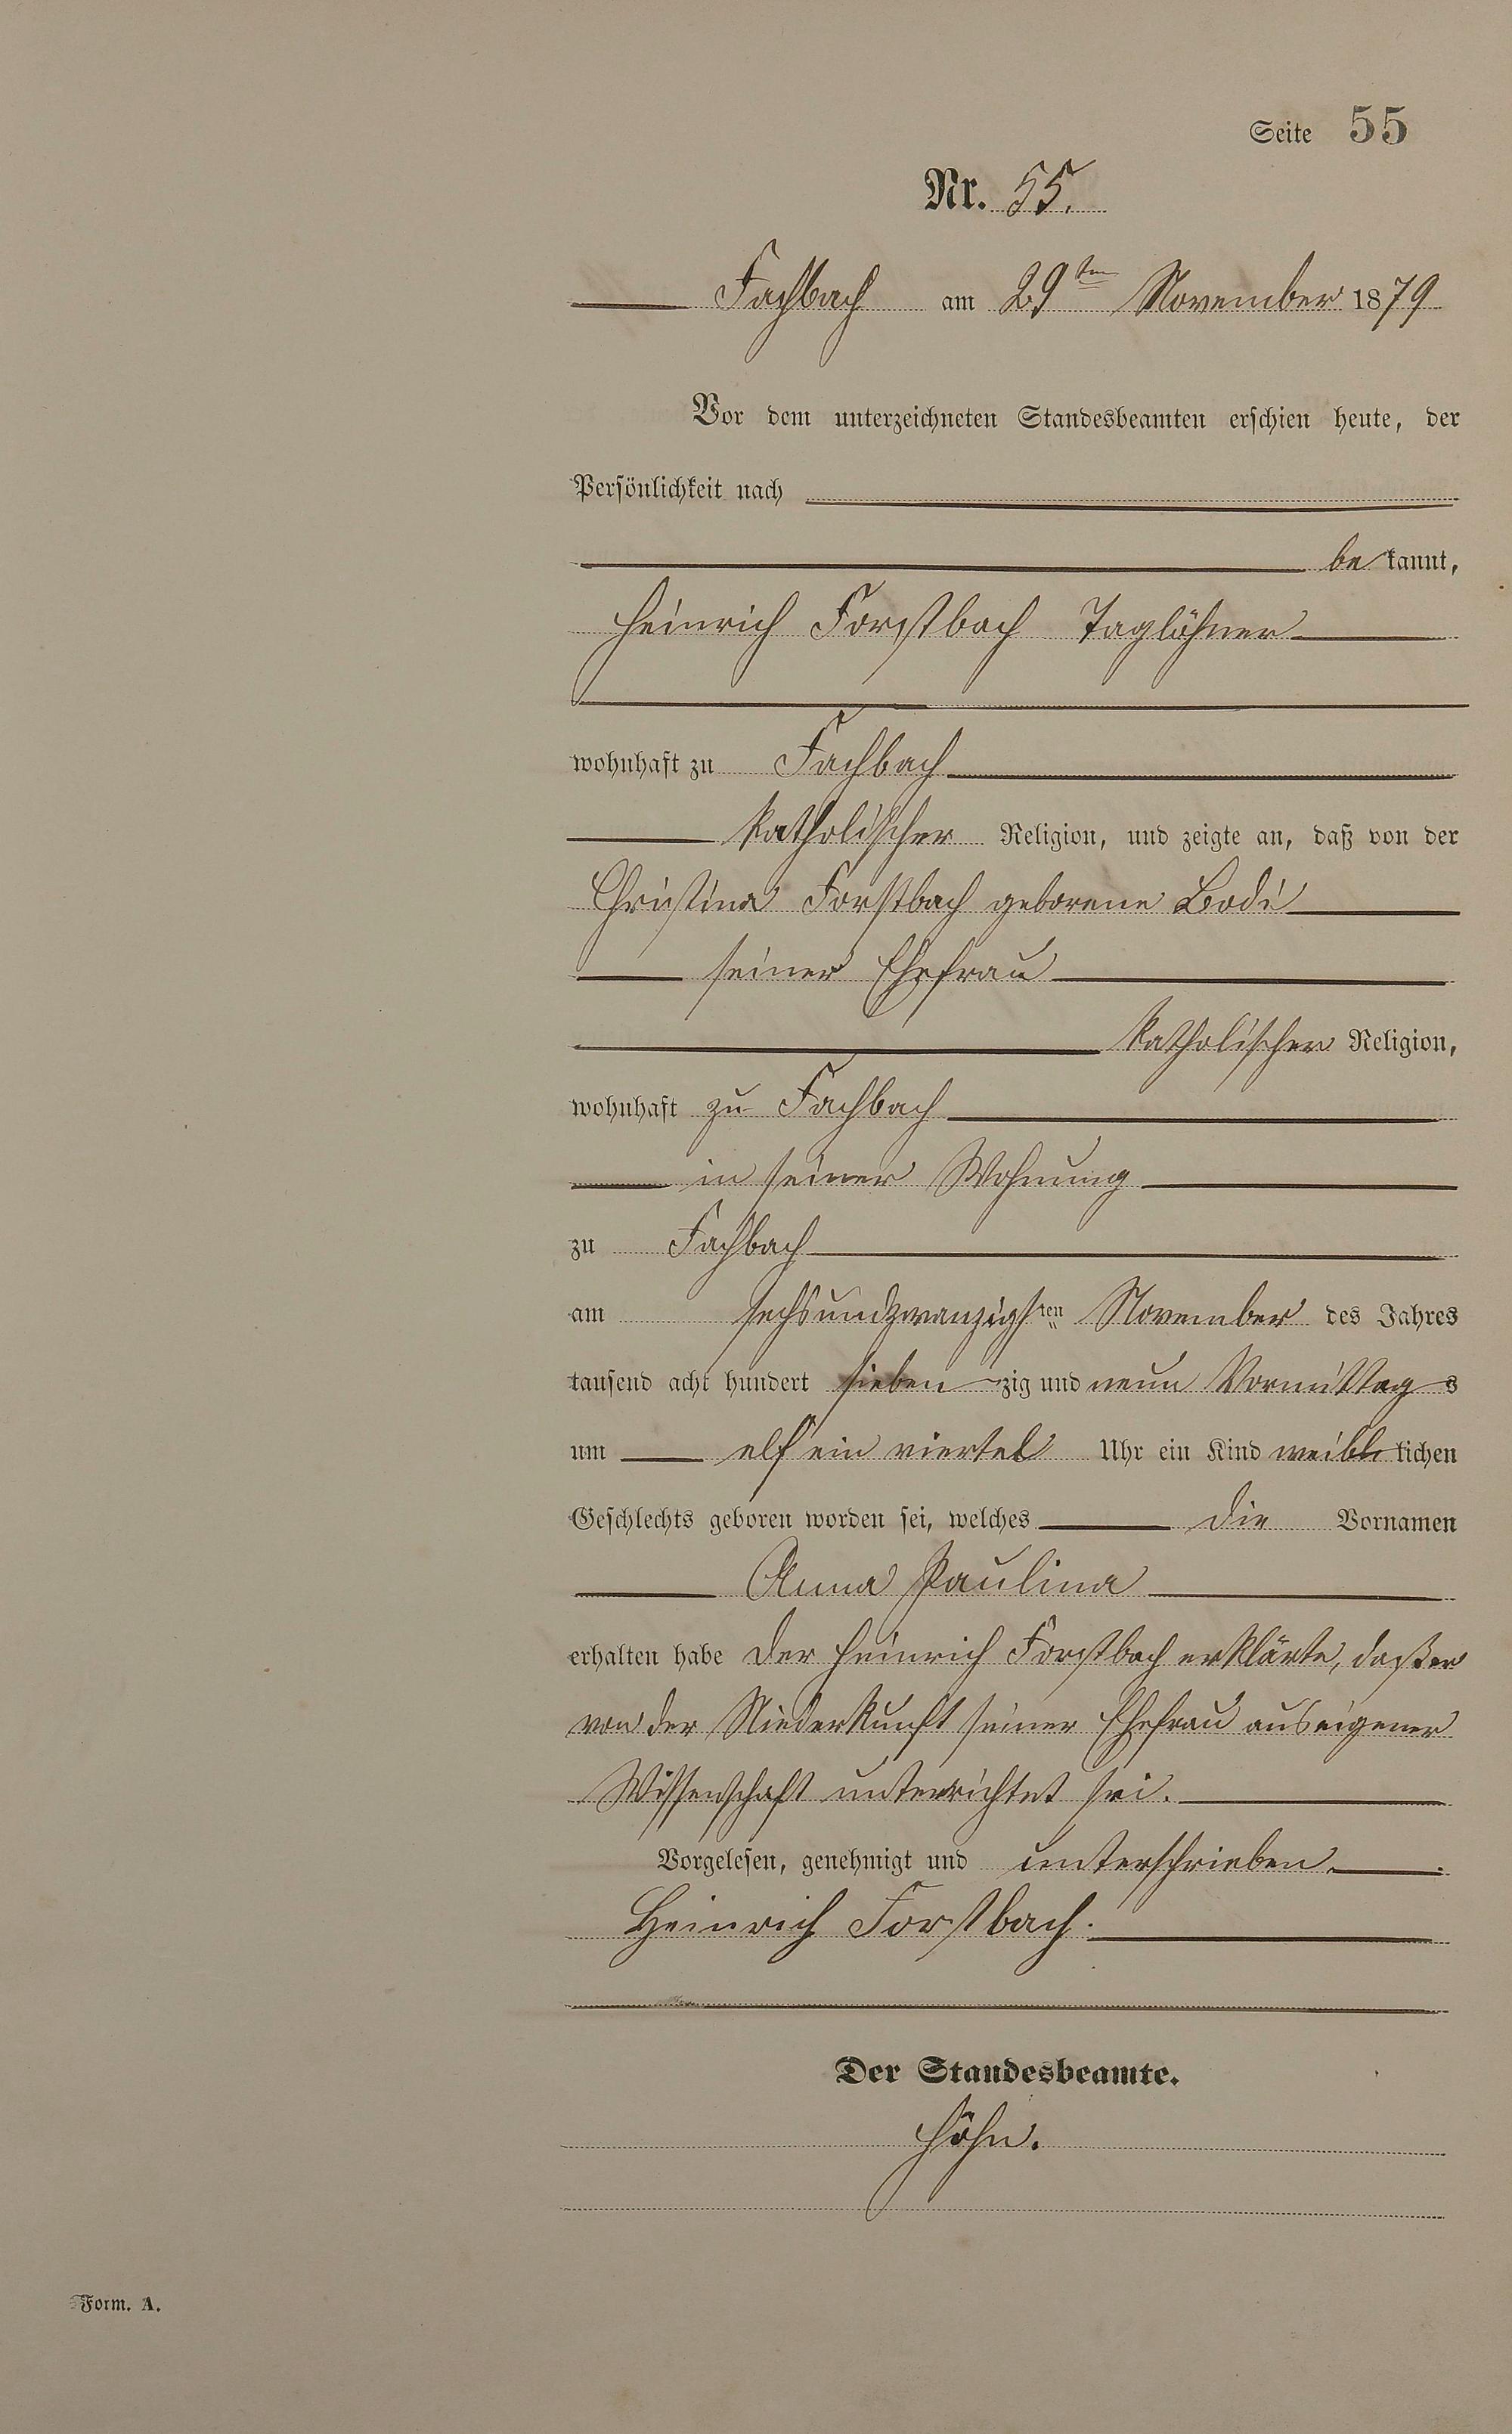 Seite 55
Nr. 55.
Fachbach am 29ten November 1879
Vor dem unterzeichneten Standesbeamten erschien heute, der
Persönlichkeit nach
be kannt,
Heinrich Forstbach Taglöhner
wohnhaft zu Fachbach
katholischer Religion, und zeigte an, daß von der
Christina Forstbach geborene Bodi
seiner Ehefrau
katholischer Religion,
wohnhaft zu Fachbach
in seiner Wohnung
zu Fachbach
am sechsundzwanzigsten November des Jahres
tausend acht hundert sieben zig und neun Vormittag s
um elf ein viertel Uhr ein Kind weibl lichen
Geschlechts geboren worden sei, welches die Vornamen
Anna Paulina
erhalten habe Der Heinrich Forstbach erklärte, daß er
von der Niederkunft seiner Ehefrau aus eigener
Wissenschaft unterrichtet sei.
Vorgelesen, genehmigt und unterschrieben.
Heinrich Forstbach.
Der Standesbeamte.
Höhn.
Form. A.